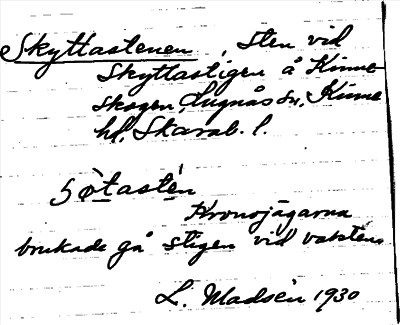 Skyttastenen, Sten vid
Skyttastigen å Kinne
skogen, Lugnås sn, Kinne
hd, Skarab. l.
søtastén
Kronojägarna
brukade gå stigen vid vaktens
L. Madsén 1930